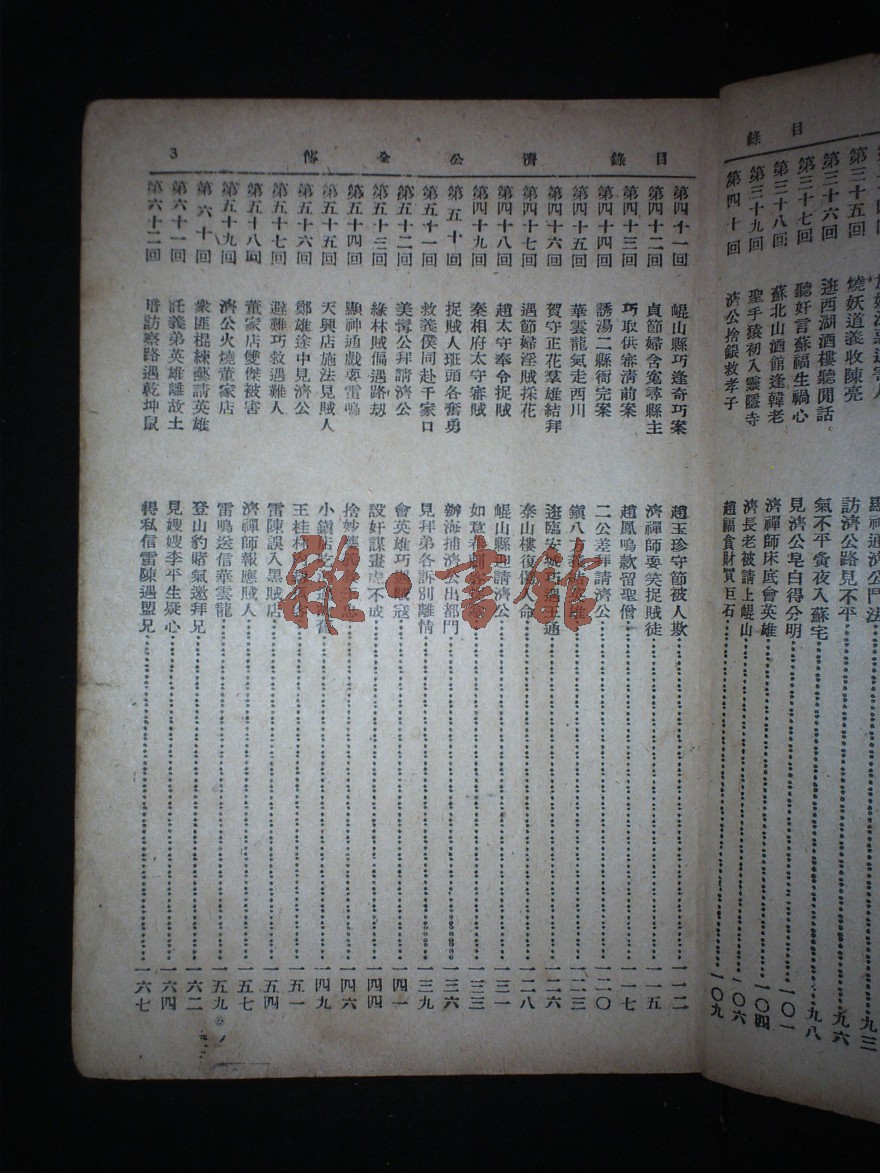 目錄
第三十五回 燒妖道義收陳亮 訪濟公路見不平 九三
第三十六回 逛西湖酒樓聽閒話 氣不平夤夜入蘇宅 九六
第三十七回 聽奸言蘇福生禍心 見濟公皂白得分明 九八
第三十八回 蘇北山酒館逢韓老 濟禪師床底會英雄 一〇一
第三十九回 聖手猿初入靈隱寺 濟長老被請上崐山 一〇四
第四十回 濟公捨銀救孝子 趙福貪財買巨石 一〇六
一〇九
目錄 濟公全傳 3
第四十一回 崐山縣巧逢奇巧案 趙玉珍守節被人欺 一一二
第四十二回 貞節婦含冤尋縣主 濟禪師耍笑捉賊徒 一一五
第四十三回 巧取供審清前案 趙鳳鳴款留聖僧 一一七
第四十四回 誘湯二縣衙完案 二公差拜請濟公 一二〇
第四十五回 華雲龍氣走西川 鎮八方 一二三
第四十六回 賀守正花羣雄結拜 逛臨安城巧遇王通 一二六
第四十七回 遇節婦淫賊採花 泰山樓復傷人命 一二八
第四十八回 趙太守奉令捉賊 崐山縣迎請濟公 一三一
第四十九回 秦相府太守審賊 如意巷 一三三
第五十回 捉賊人班頭各奮勇 辦海捕濟公出都門 一三六
第五十一回 救義僕同赴千家口 見拜弟各訴別離情 一三九
第五十二回 美髯公拜請濟公 會英雄巧 賊寇 一四一
第五十三回 綠林賊偏遇路刧 設奸謀畫虎不成 一四四
第五十四回 顯神通戲耍雷鳴 捨妙藥 一四六
第五十五回 天興店施法見賊人 小鎮店吃 一四九
第五十六回 鄭雄途中見濟公 王桂林 一五一
第五十七回 避難巧救遇難人 雷陳誤入黑賊店 一五四
第五十八回 董家店雙傑被害 濟禪師報應賊人 一五七
第五十九回 濟公火燒董家店 雷鳴送信華雲龍 一五九
第六十回 衆匪棍練藝請英雄 登山豹賭氣邀拜兄 一六二
第六十一回 託義弟英雄離故土 見嫂嫂李平生疑心 一六四
第六十二回 暗訪察路遇乾坤鼠 得私信雷陳遇盟兄 一六七
雜·書館